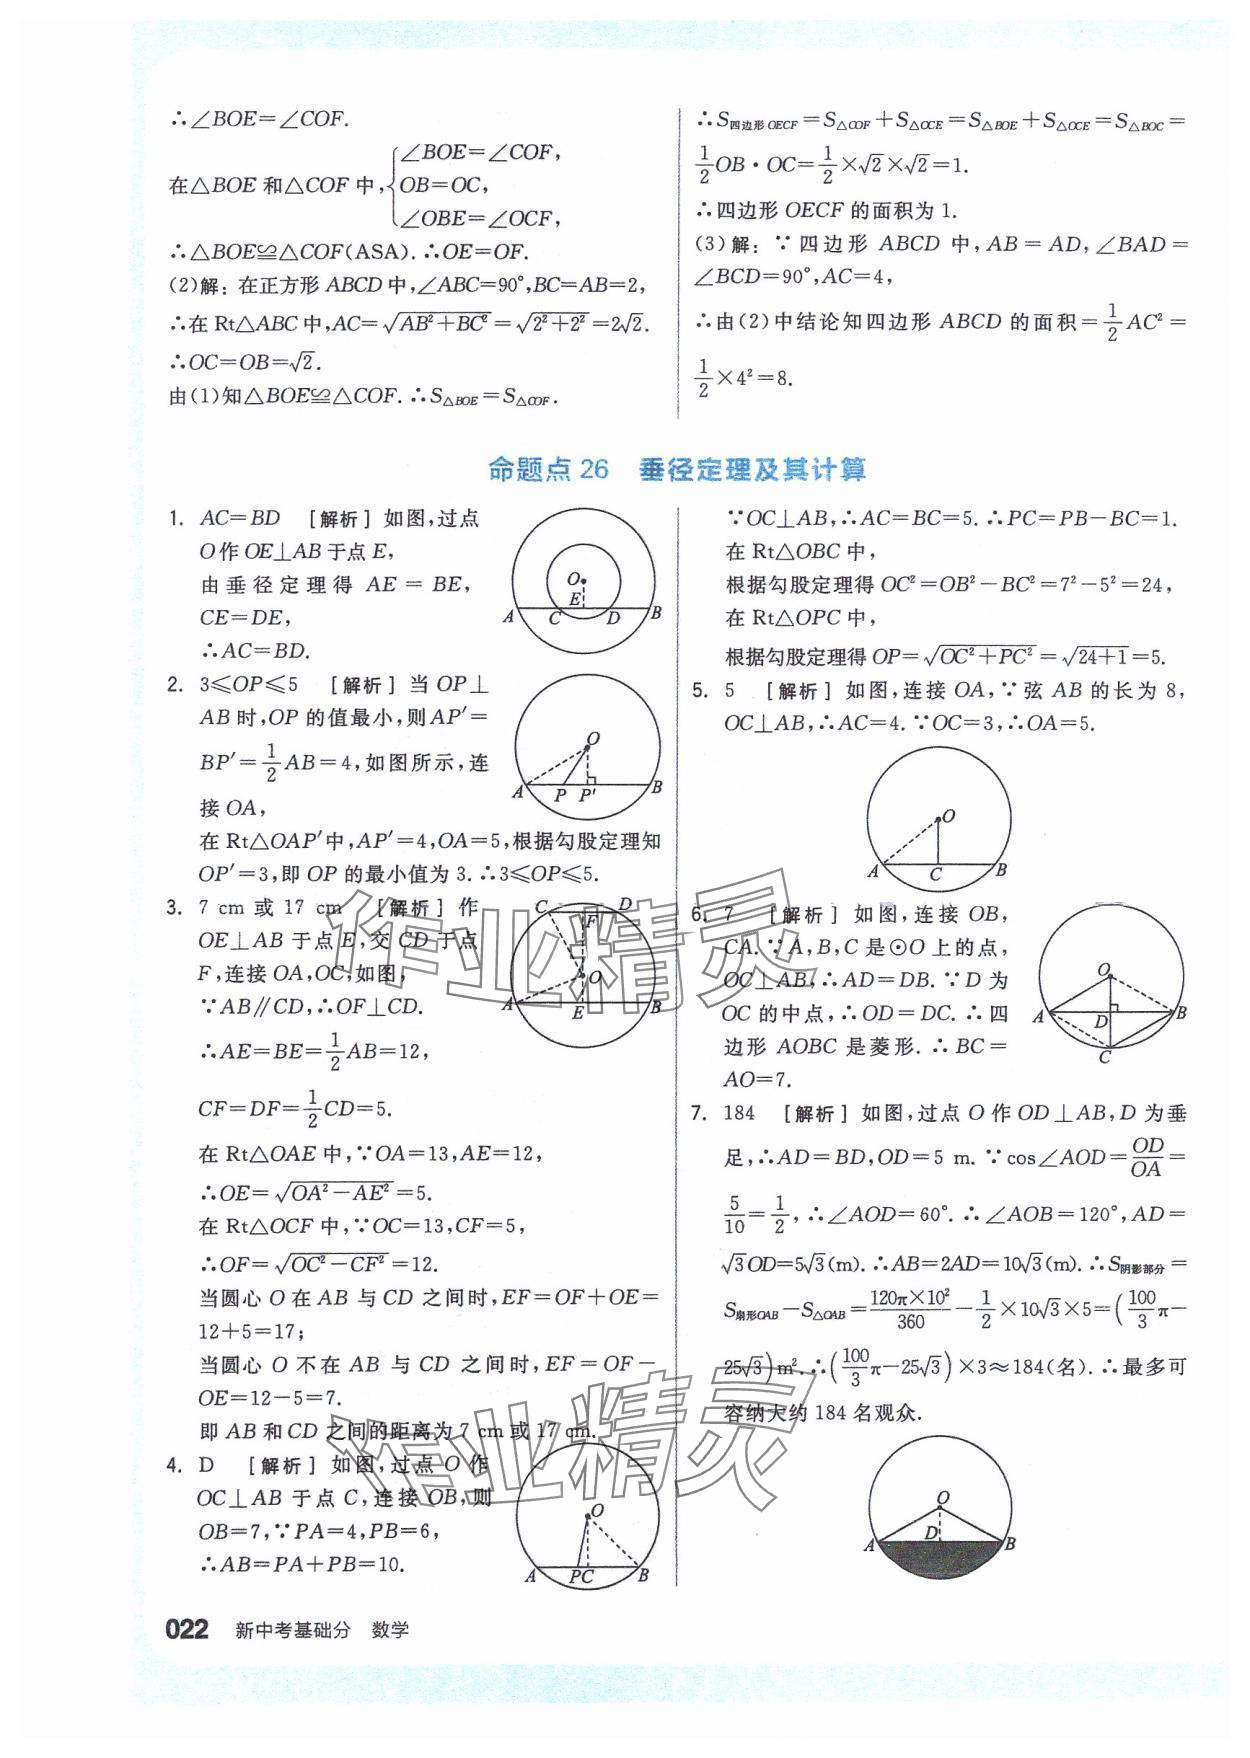 ∴∠BOE=∠COF.
在△BOE 和△COF 中,{∠BOE=∠COF,
OB=OC,
∠OBE=∠OCF,
∴△BOE≌△COF(ASA).∴OE=OF.
(2)解:在正方形 ABCD 中,∠ABC=90°,BC=AB=2,
∴在 Rt△ABC 中,AC=√(AB²+BC²)=√(2²+2²)=2√2.
∴OC=OB=√2.
由(1)知△BOE≌△COF.∴S△BOE=S△COF.
∴S四边形OECF=S△COF+S△OCE=S△BOE+S△OCE=S△BOC=
1/2 OB·OC=1/2×√2×√2=1.
∴四边形 OECF 的面积为 1.
(3)解:∵四边形 ABCD 中,AB=AD,∠BAD=
∠BCD=90°,AC=4,
∴由(2)中结论知四边形 ABCD 的面积=1/2 AC²=
1/2×4²=8.
命题点 26 垂径定理及其计算
1. AC=BD [解析]如图,过点
O作 OE⊥AB 于点 E,
由垂径定理得 AE=BE,
CE=DE,
∴AC=BD.
O
E
A C D B
2. 3≤OP≤5 [解析]当 OP⊥
AB 时,OP 的值最小,则 AP′=
BP′=1/2 AB=4,如图所示,连
接 OA,
在 Rt△OAP′中,AP′=4,OA=5,根据勾股定理知
OP′=3,即 OP 的最小值为 3.∴3≤OP≤5.
O
A P P′ B
3. 7 cm 或 17 cm [解析]作
OE⊥AB 于点 E,交 CD 于点
F,连接 OA,OC,如图,
∵AB∥CD,∴OF⊥CD.
∴AE=BE=1/2 AB=12,
CF=DF=1/2 CD=5.
在 Rt△OAE 中,∵OA=13,AE=12,
∴OE=√(OA²-AE²)=5.
在 Rt△OCF 中,∵OC=13,CF=5,
∴OF=√(OC²-CF²)=12.
当圆心 O 在 AB 与 CD 之间时,EF=OF+OE=
12+5=17;
当圆心 O 不在 AB 与 CD 之间时,EF=OF-
OE=12-5=7.
即 AB 和 CD 之间的距离为 7 cm 或 17 cm.
C D
F
O
A E B
4. D [解析]如图,过点 O 作
OC⊥AB 于点 C,连接 OB,则
OB=7,∵PA=4,PB=6,
∴AB=PA+PB=10.
O
A PC B
∵OC⊥AB,∴AC=BC=5.∴PC=PB-BC=1.
在 Rt△OBC 中,
根据勾股定理得 OC²=OB²-BC²=7²-5²=24,
在 Rt△OPC 中,
根据勾股定理得 OP=√(OC²+PC²)=√(24+1)=5.
5. 5 [解析]如图,连接 OA,∵弦 AB 的长为 8,
OC⊥AB,∴AC=4.∵OC=3,∴OA=5.
O
A C B
6. 7 [解析]如图,连接 OB,
CA.∵A,B,C 是⊙O 上的点,
OC⊥AB,∴AD=DB.∵D 为
OC 的中点,∴OD=DC.∴四
边形 AOBC 是菱形.∴BC=
AO=7.
O
A D B
C
7. 184 [解析]如图,过点 O 作 OD⊥AB,D 为垂
足,∴AD=BD,OD=5 m.∵cos∠AOD=OD/OA=
5/10=1/2,∴∠AOD=60°.∴∠AOB=120°,AD=
√3OD=5√3(m).∴AB=2AD=10√3(m).∴S阴影部分=
S扇形OAB-S△OAB=120π×10²/360-1/2×10√3×5=(100/3π-
25√3)m².∴(100/3π-25√3)×3≈184(名).∴最多可
容纳大约 184 名观众.
O
A D B
作业精灵
作业精灵
022 新中考基础分 数学